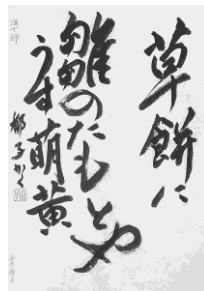 草餅に
雛のたもとや
うす萌黄
郁子かく